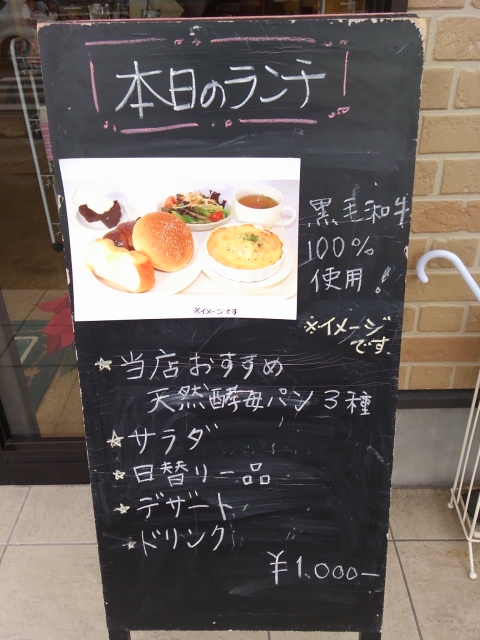 本日のランチ
※イメージです
黒毛和牛
100%
使用!
※イメージ
です
☆当店おすすめ
天然酵母パン3種
☆サラダ
☆日替り一品
☆デザート
☆ドリンク
¥1,000-